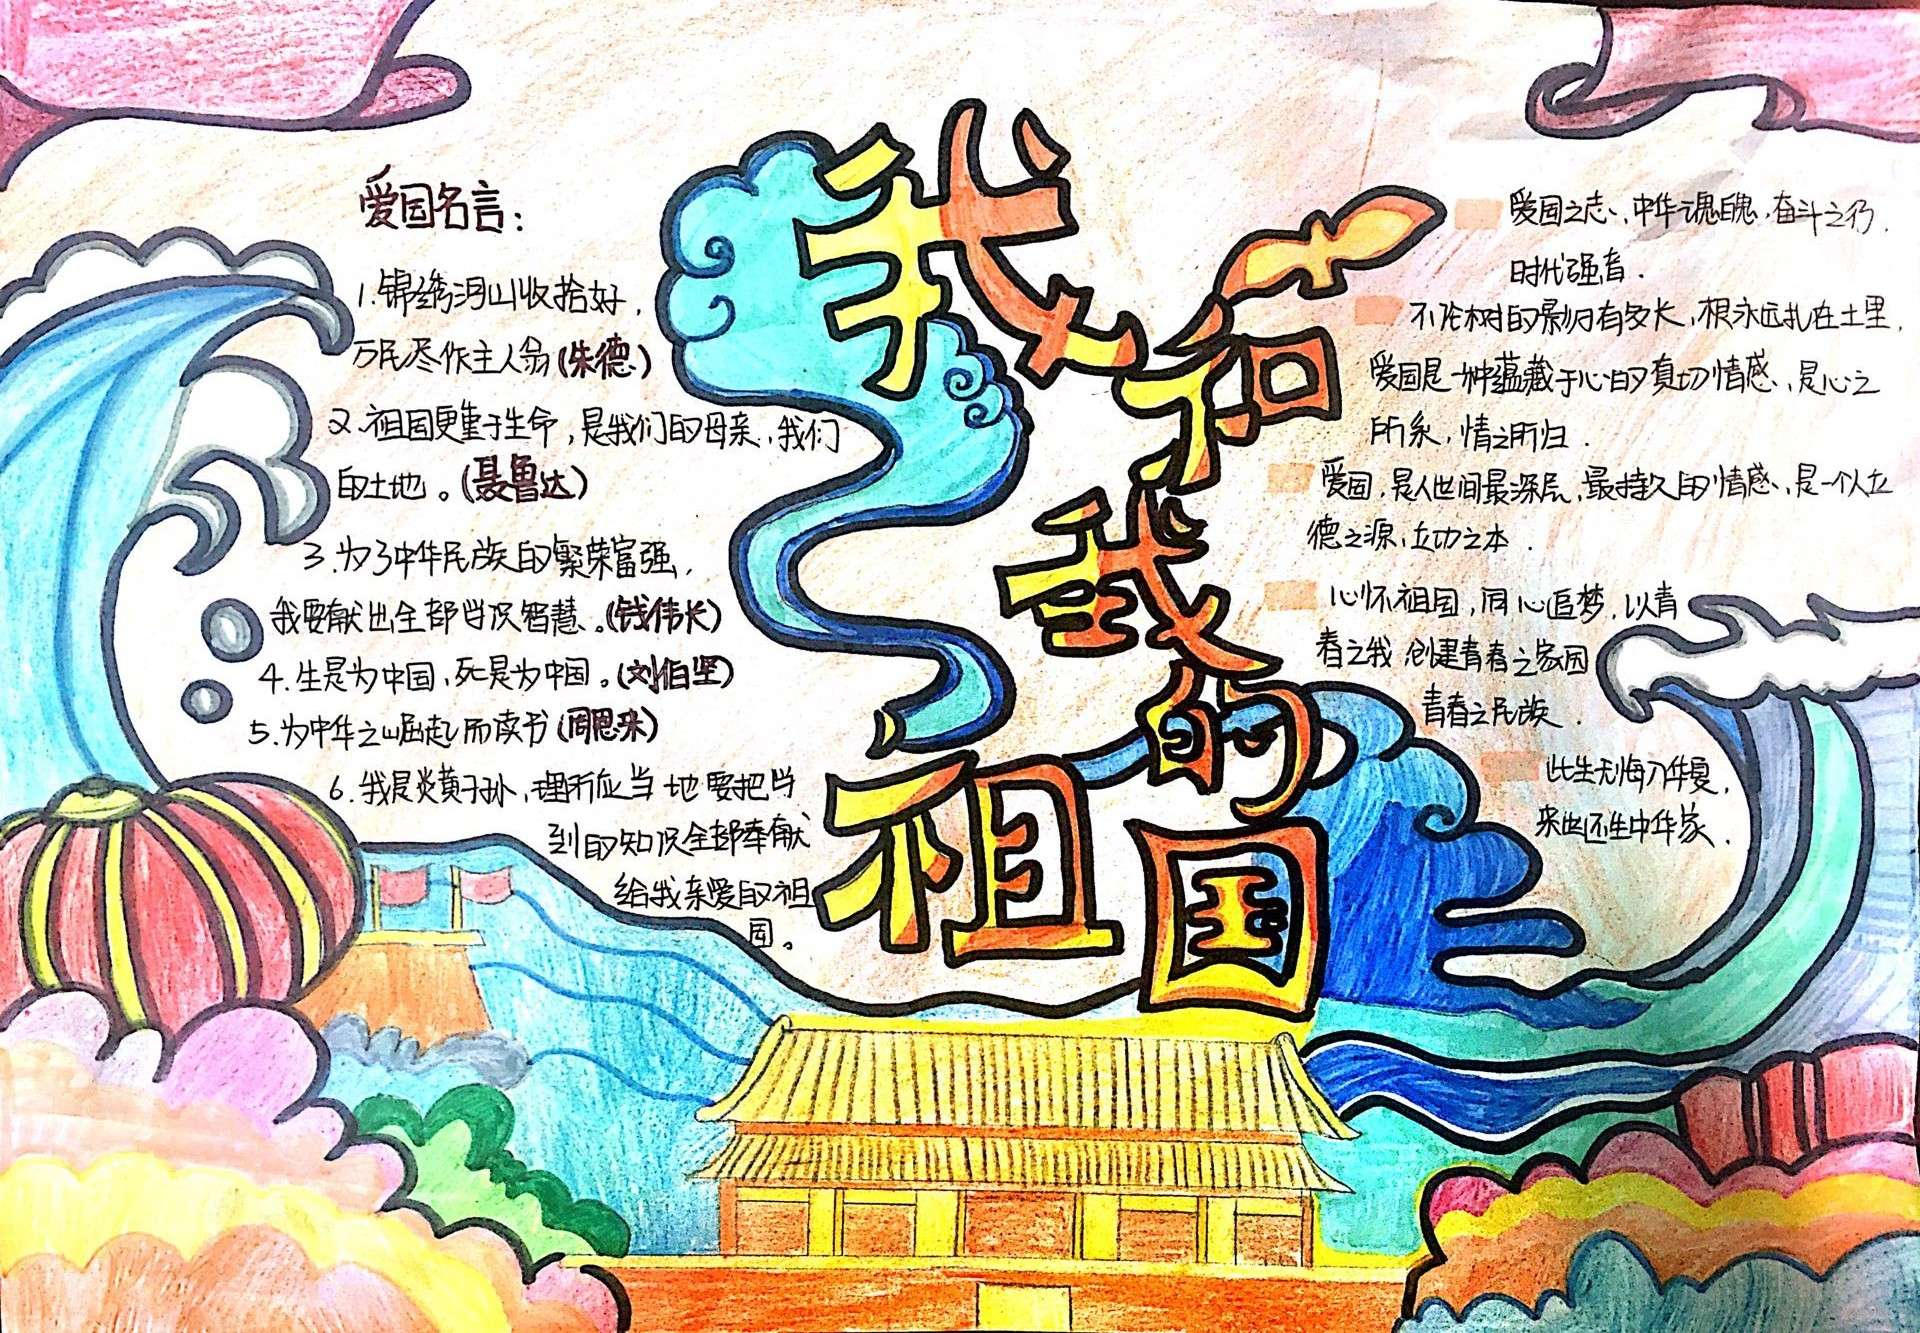 我和我的祖国
爱国名言:
1.锦绣河山收拾好,
万民尽作主人翁(朱德)
2.祖国更重于生命,是我们的母亲,我们
的土地。(聂鲁达)
3.为了中华民族的繁荣富强,
我要献出全部学识智慧。(钱伟长)
4.生是为中国,死是为中国。(刘伯坚)
5.为中华之崛起而读书(周恩来)
6.我是炎黄子孙,理所应当地要把学
到的知识全部奉献
给我亲爱的祖
国。
爱国之志,中华魂魄,奋斗之行,
时代强音.
不论树的影归有多长,根永远扎在土里,
爱国是一种蕴藏于心的真切情感,是心之
所系,情之所归.
爱国,是人世间最深层,最持久的情感,是一个人立
德之源,立功之本.
心怀祖国,同心追梦,以青
春之我,创建青春之家园
青春之民族.
此生无悔入华夏,
来世还生中华家.